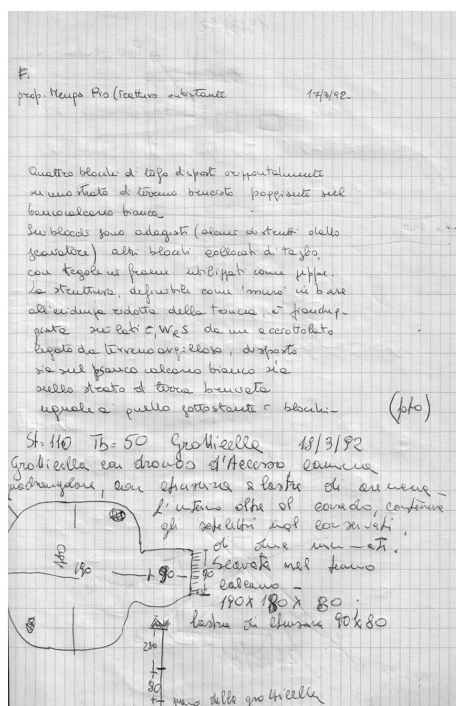 F.
prop. Pio (Trattura 17/3/92
Quattro blocchi di tufo disposti orizzontalmente
su uno strato di terreno poggiante sul
banco calcareo bianco.
Sui blocchi sono adagiati (alcuni distrutti dallo
scavatore) altri blocchi collocati di taglio,
con tegole in framm. utilizzati come zeppe.
La struttura, definibile come "muro" in base
all'esigua ridotta della trincea, è fiancheg-
giata sui lati E, W e S da un acciottolato
legato da terreno argilloso, disposto
sia sul banco calcareo bianco sia
sullo strato di terra
uguale a quello sottostante i blocchi- (foto)
St= 110 Tb= 50 Grotticella 18/3/92
Grotticella con dromos d'Accesso, camera
quadrangolare, con chiusura a lastre di arenaria-
L'interno oltre al corredo, conteneva
gli scheletri mal conservati
di due inumati.
Scavata nel banco
calcareo-
190 x 180 x 80;
lastra di chiusura 90x80
180
190
90
90
230
80
piano della grotticella